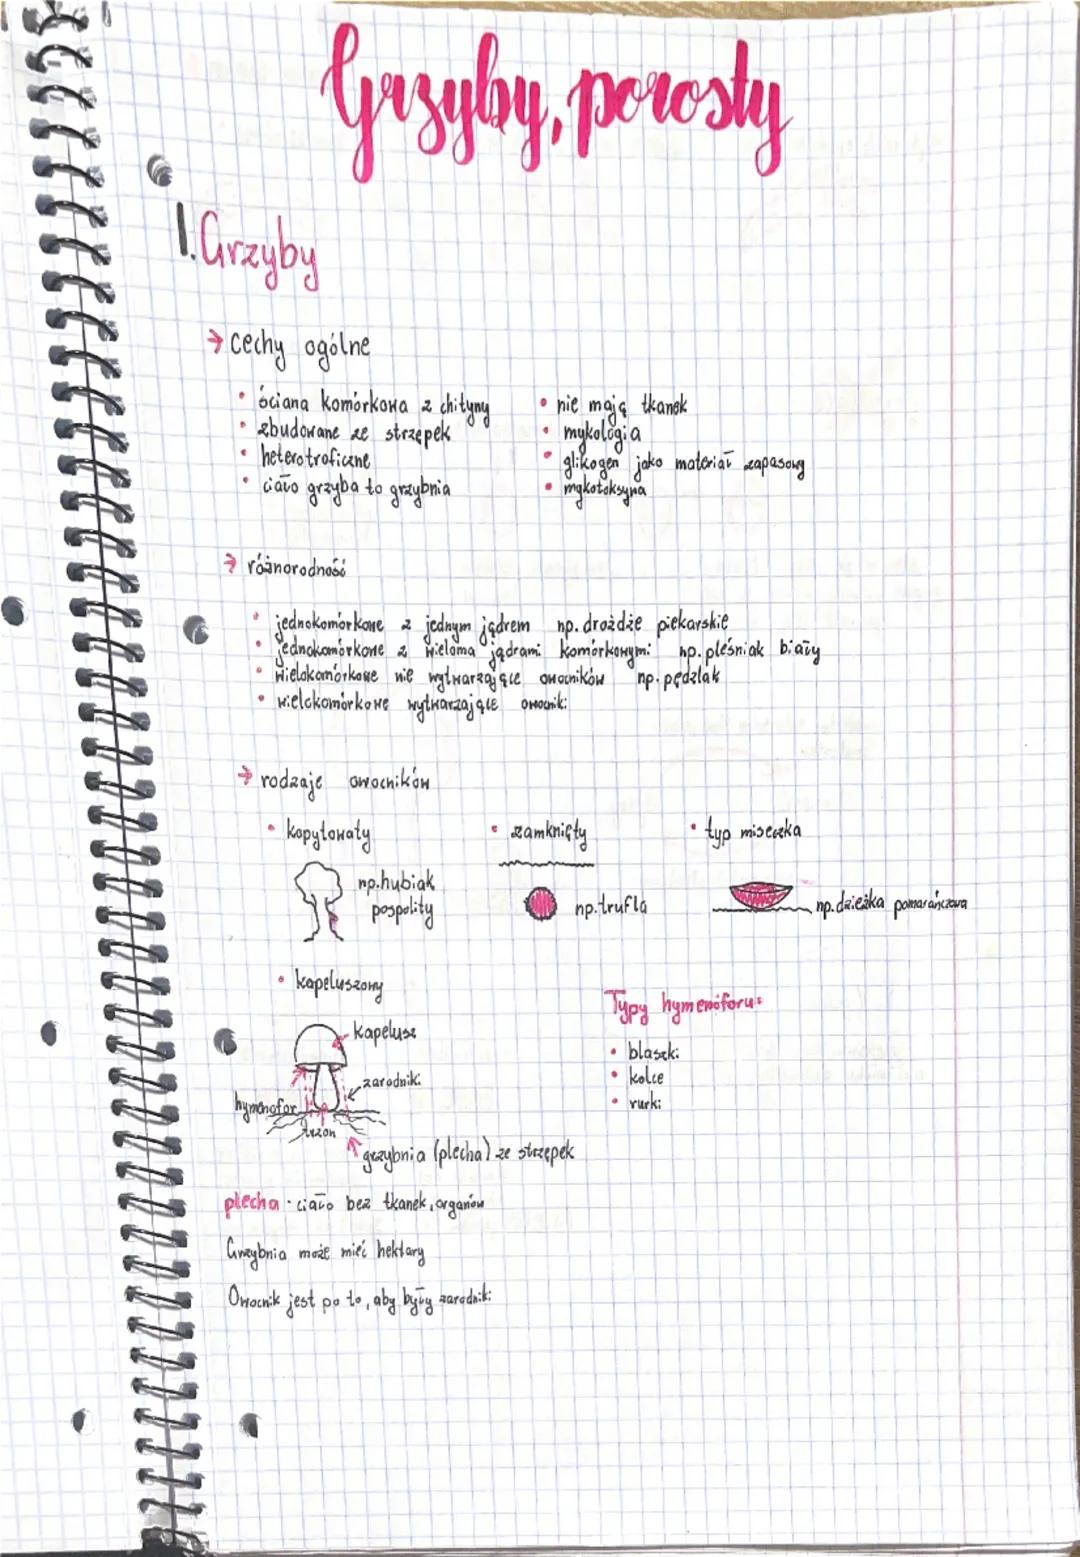 Grzyby, porosty
1. Grzyby
→ cechy ogólne
• ściana komórkowa z chityny
• zbudowane ze strzępek
• heterotroficzne
• ciało grzyba to grzybnia
• nie mają tkanek
• mykologia
• glikogen jako materiał zapasowy
• mykotoksyna
→ różnorodność
• jednokomórkowe z jednym jądrem np. drożdże piekarskie
• jednokomórkowe z wieloma jądrami komórkowymi np. pleśniak biały
• wielokomórkowe nie wytwarzające owocników np. pędzlak
• wielokomórkowe wytwarzające owocniki
→ rodzaje owocników
• kopytowaty
np. hubiak
pospolity
• zamknięty
np. trufla
• typ miseczka
np. dzieżka pomarańczowa
• kapeluszowy
kapelusz
zarodniki
hymenofor
trzon
grzybnia (plecha) ze strzępek
Typy hymenoforu:
• blaszki
• kolce
• rurki
plecha - ciało bez tkanek, organów
Grzybnia może mieć hektary
Owocnik jest po to, aby były zarodniki